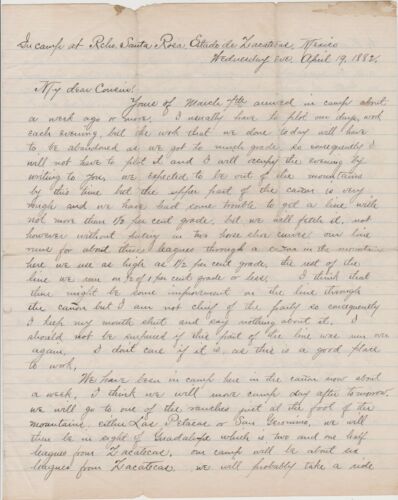 In camp at Rcho. Santa Rosa, Estado de Zacatecas, Mexico
Wednesday eve. April 19, 1882.
My dear Cousin:
Yours of March 7th arrived in camp about
a week ago or more. I usually have to plot our days work
each evening, but the work that we done today will have
to be abandoned as we got to much grade, so consequently I
will not have to plot it and I will occupy the evening by
writing to you, we expected to be out of the mountains
by this time but the upper part of the cañon is very
rough and we have had some trouble to get a line with
not more than 1½ per cent grade, but we will fetch it, not
however without puting in two horse shoe curves our line
runs for about three leagues through a cañon in the mountain
here we use as high as 1½ per cent grade, the rest of the
line we run on ½ of 1 per cent grade or less. I think that
there might be some improvement on the line through
the cañon but I am not chief of the party so consequently
I keep my mouth shut and say nothing about it. I
should not be surprised if this part of the line was run over
again. I don't care if it is, as this is a good place
to work.
We have been in camp here in the cañon now about
a week. I think we will move camp day after tomorrow.
we will go to one of the ranches just at the foot of the
mountains, either Las Petacas or San Geronimo, we will
then be in sight of Guadalupe which is two and one half
leagues from Zacatecas. our camp will be about six
leagues from Zacatecas. we will probably take a ride